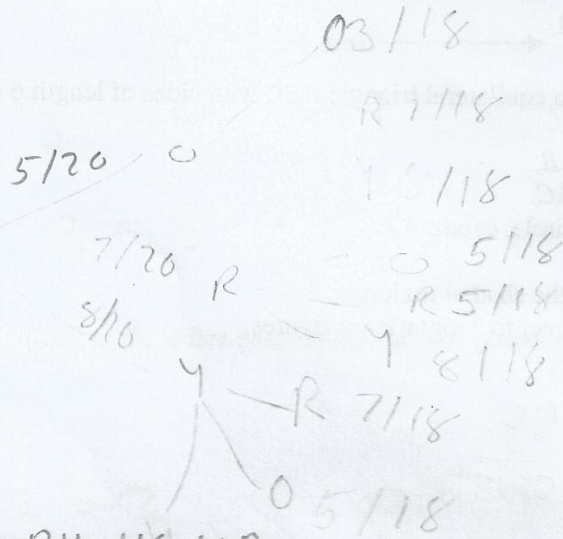 O3/18
R 7/18
5/20 O
Y /18
7/20 R
O 5/18
R 5/18
8/20
Y 8/18
Y
R 7/18
O 5/18